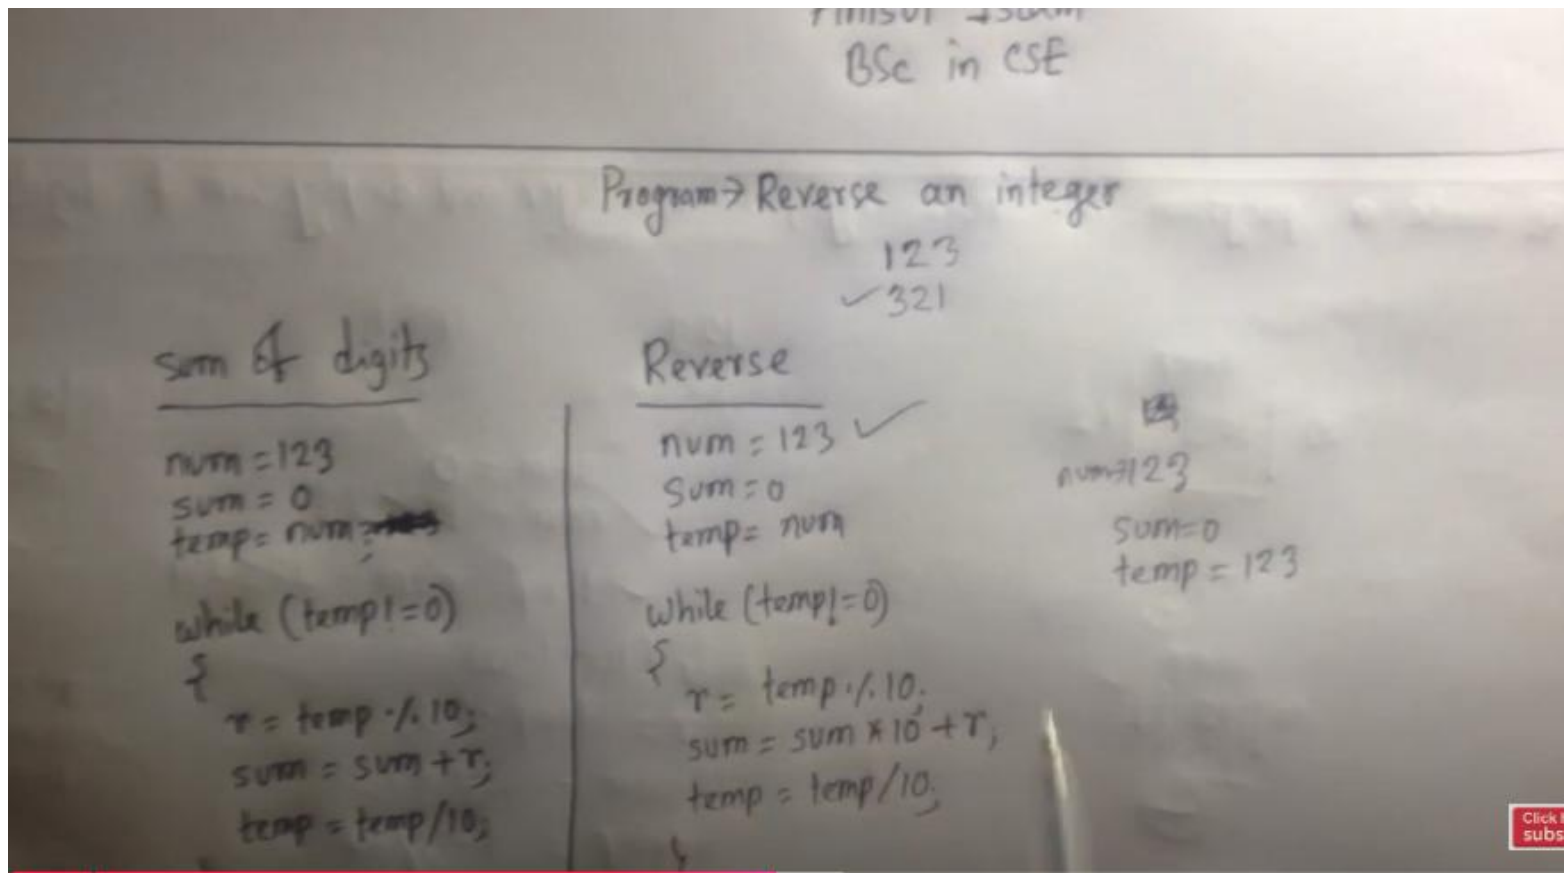 BSc in CSE
Program→ Reverse an integer
123
✓321
sum of digits
num = 123
sum = 0
temp = num;
while (temp!=0)
{
r = temp % 10;
sum = sum + r;
temp = temp/10;
Reverse
num = 123 ✓
sum = 0
temp = num
while (temp!=0)
{
r = temp % 10;
sum = sum * 10 + r;
temp = temp/10;
}
num→123
sum=0
temp = 123
Click
subs